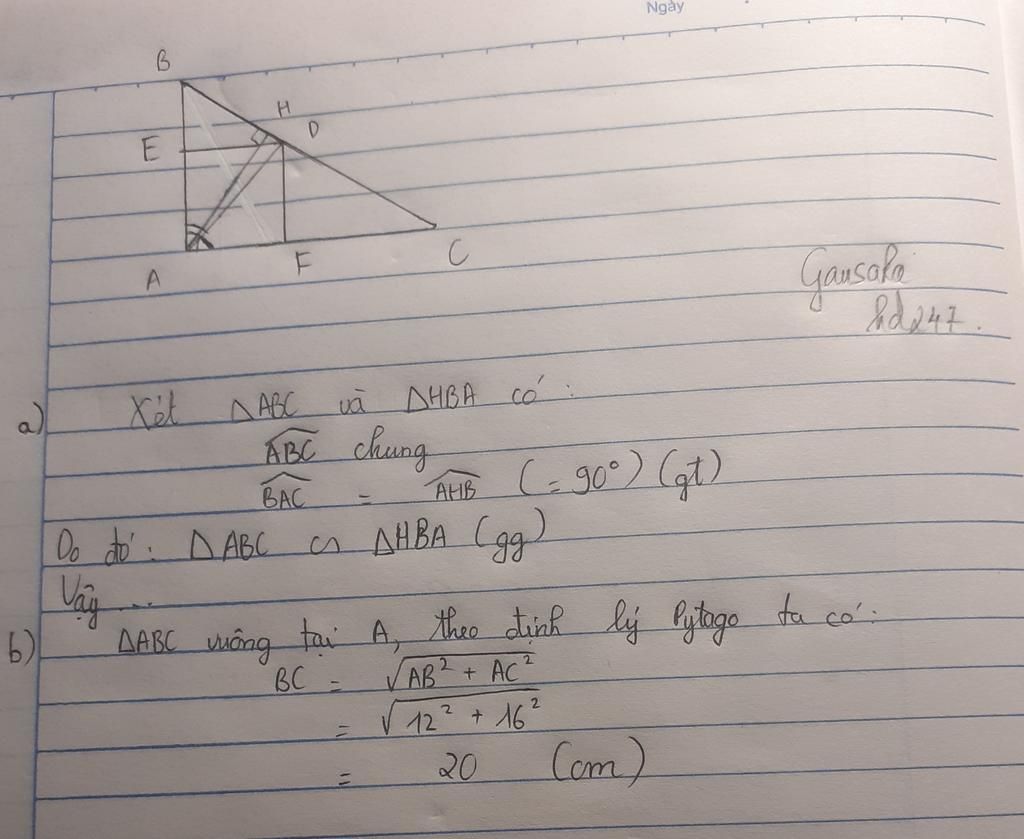 Ngày
B
H
D
E
A
F
C
hd247.
a) Xét ΔABC và ΔHBA có:
\widehat{ABC} chung
\widehat{BAC} = \widehat{AHB} (=90°) (gt)
Do đó: ΔABC ∽ ΔHBA (gg)
Vậy ...
b) ΔABC vuông tại A, theo định lý Pytago ta có:
BC = √(AB² + AC²)
= √(12² + 16²)
= 20 (cm)